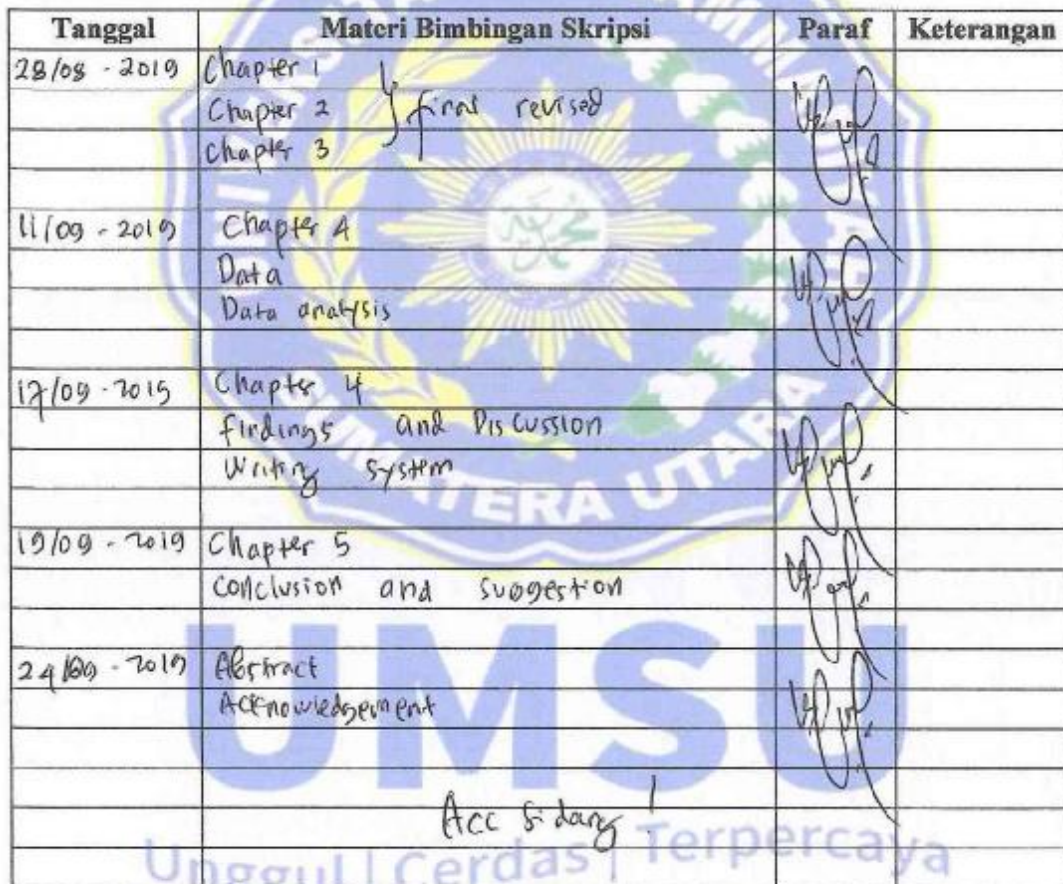 Tanggal Materi Bimbingan Skripsi Paraf Keterangan
28/08 - 2019 Chapter 1
Chapter 2 } final revised
Chapter 3
11/09 - 2019 Chapter 4
Data
Data analysis
17/09 - 2019 Chapter 4
Findings and Discussion
Writing system
SUMATERA UTARA
19/09 - 2019 Chapter 5
Conclusion and suggestion
24/09 - 2019 Abstract
Acknowledgement
UMSU
Acc Sidang !
Unggul | Cerdas | Terpercaya